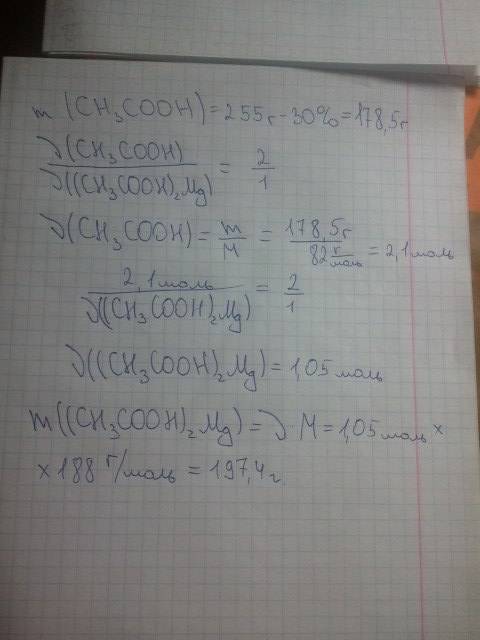 m (CH₃COOH) = 255г - 30% = 178,5г
ν(CH₃COOH) / ν((CH₃COOH)₂Mg) = 2/1
ν(CH₃COOH) = m/M = 178,5г / 82 г/моль = 2,1 моль
2,1 моль / ν((CH₃COOH)₂Mg) = 2/1
ν((CH₃COOH)₂Mg) = 1,05 моль
m((CH₃COOH)₂Mg) = ν M = 1,05 моль ×
× 188 г/моль = 197,4 г.